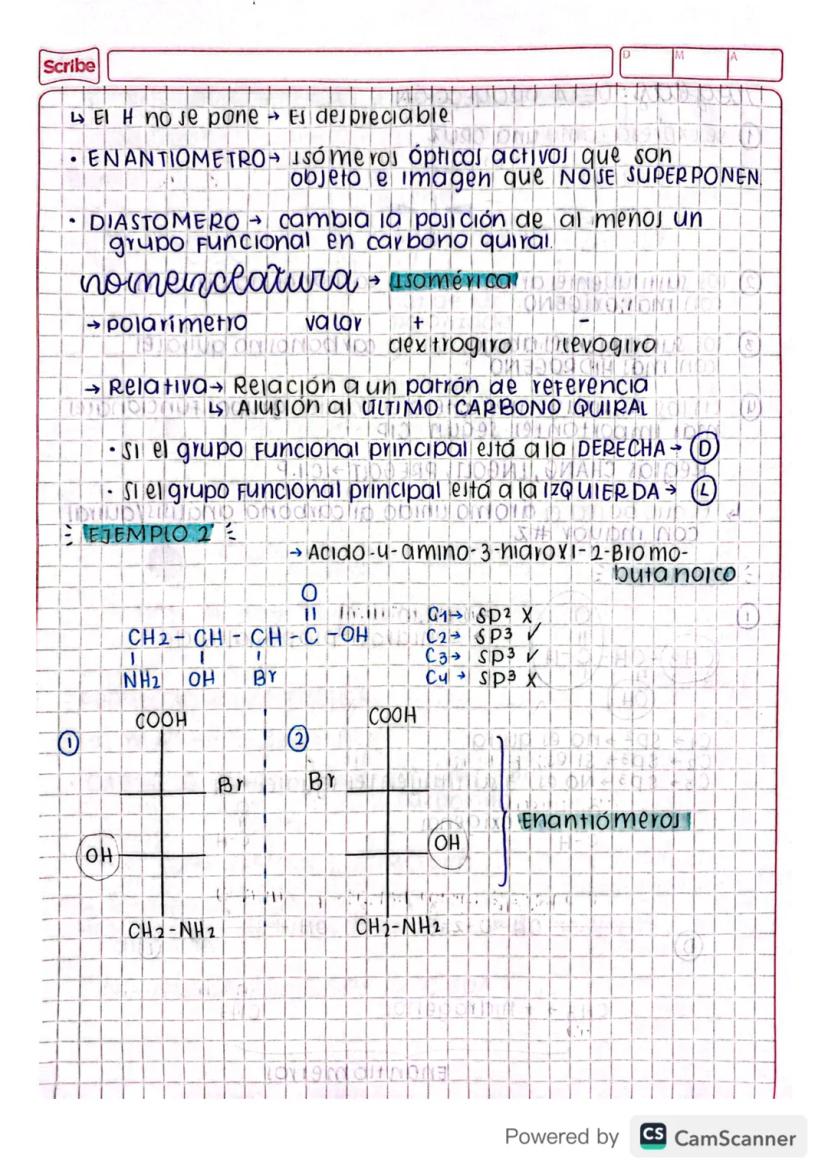 Scribe
D M A
↳ El H no se pone → Es despreciable
• ENANTIOMETRO → isómeros ópticos activos que son
objeto e imagen que NO SE SUPERPONEN
• DIASTOMERO → cambia la posición de al menos un
grupo funcional en carbono quiral.
nomenclatura → Isomérica
→ polarímetro valor + -
dextrogiro levogiro
→ Relativa → Relación a un patrón de referencia
↳ Alusión al ULTIMO CARBONO QUIRAL
• Si el grupo funcional principal está a la DERECHA → D
• Si el grupo funcional principal está a la IZQUIERDA → L
EJEMPLO 2
→ Acido-4-amino-3-hidroxi-2-Bromo-
butanoico
O
|| C1 → SP2 X
CH2 - CH - CH - C - OH C2 → SP3 ✓
| | | C3 → SP3 ✓
NH2 OH Br C4 → SP3 X
COOH COOH
1 2
Br Br
Enantiómeros
OH OH
CH2-NH2 CH2-NH2
Powered by CS CamScanner